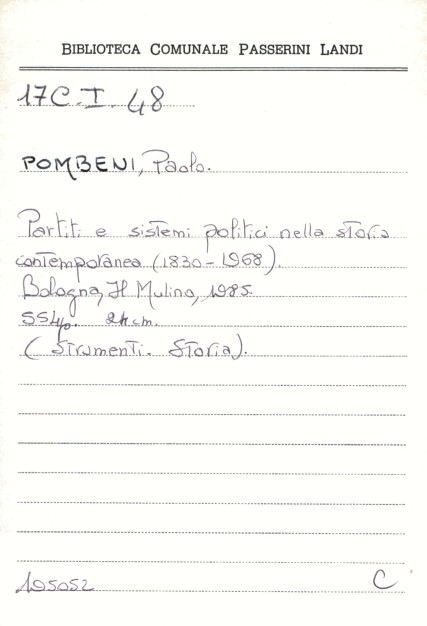 BIBLIOTECA COMUNALE PASSERINI LANDI
17C.I. 48
POMBENI, Paolo.
Partiti e sistemi politici nella storia
contemporanea (1830-1968).
Bologna, Il Mulino, 1985.
554p. 24 cm.
(Strumenti. Storia).
195052 C